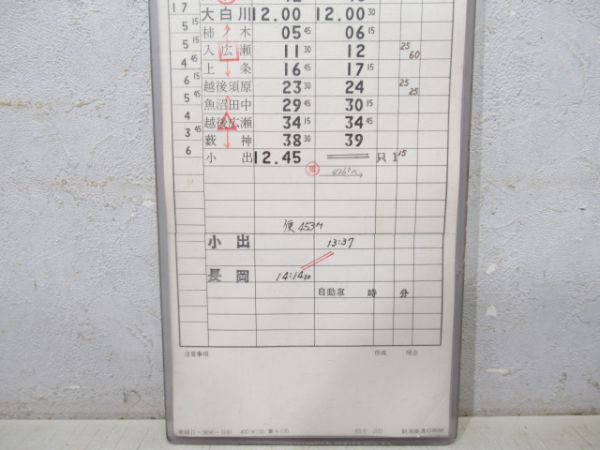 17 大白川 12.00 12.00 30
5 15 柿ノ木 05 45 06 15
5 15 入広瀬 11 30 12 25 60
4 45 上条 16 45 17 15
6 15 越後須原 23 30 24 25 25
5 45 魚沼田中 29 45 30 15
4 越後広瀬 34 15 34 45
3 45 藪神 38 30 39
6 小出 12.45 只1 15
便 453M
小出 13:37
長岡 14:14
自動車 時 分
注意事項 作成 照合